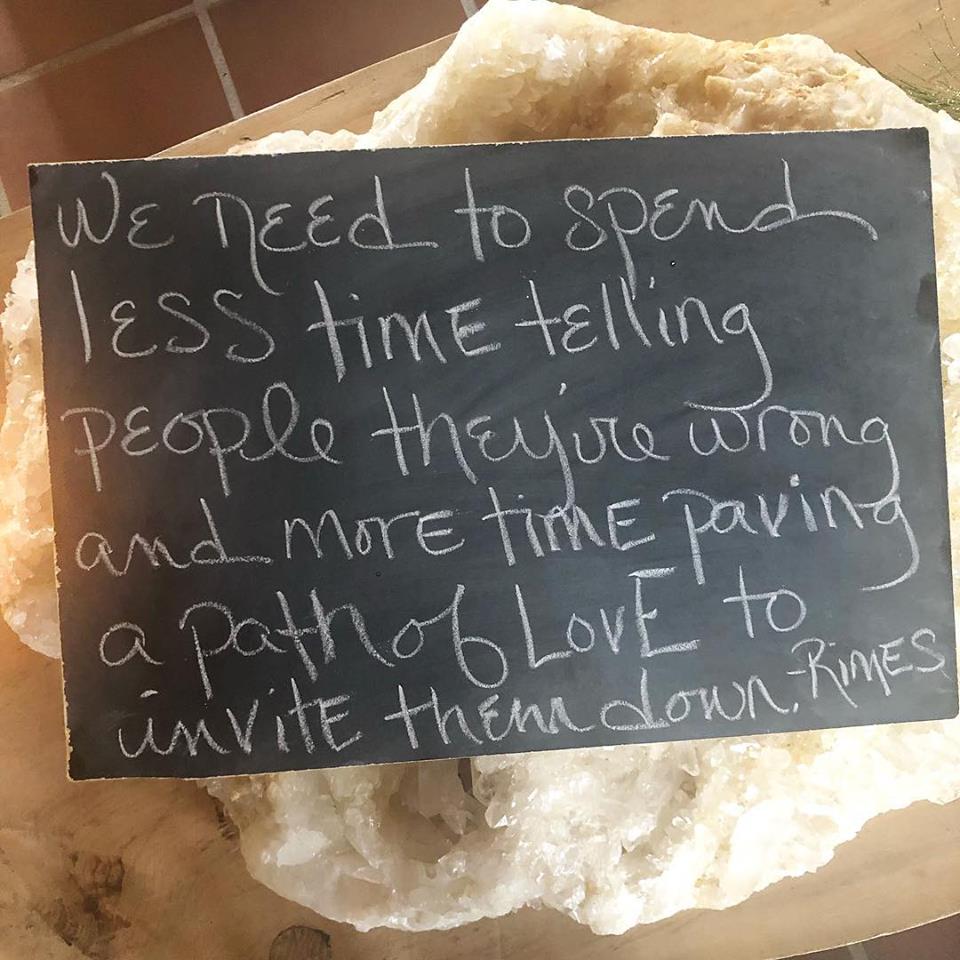 We need to spend
less time telling
people they're wrong
and more time paving
a path of LovE to
invite them down. -RimES